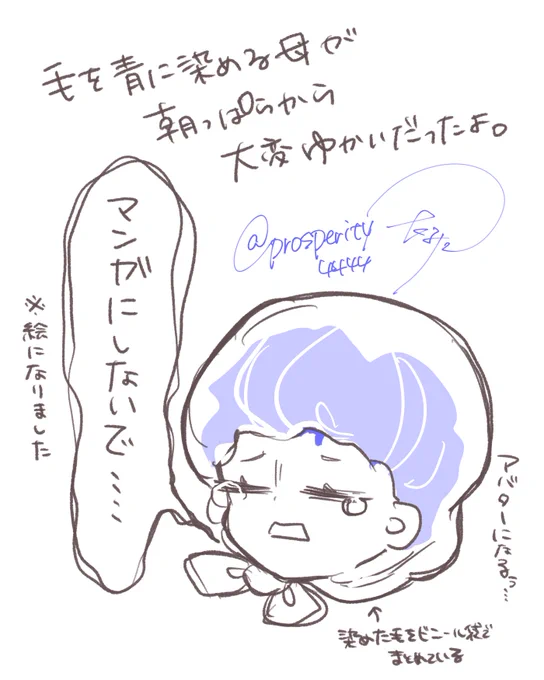 毛を青に染める母が
朝っぱらから
大変ゆかいだったよ。
@prosperity
4444
マンガにしないで……
※絵になりました
アバターになるっ…
↑
染めた毛をビニール袋で
まとめている